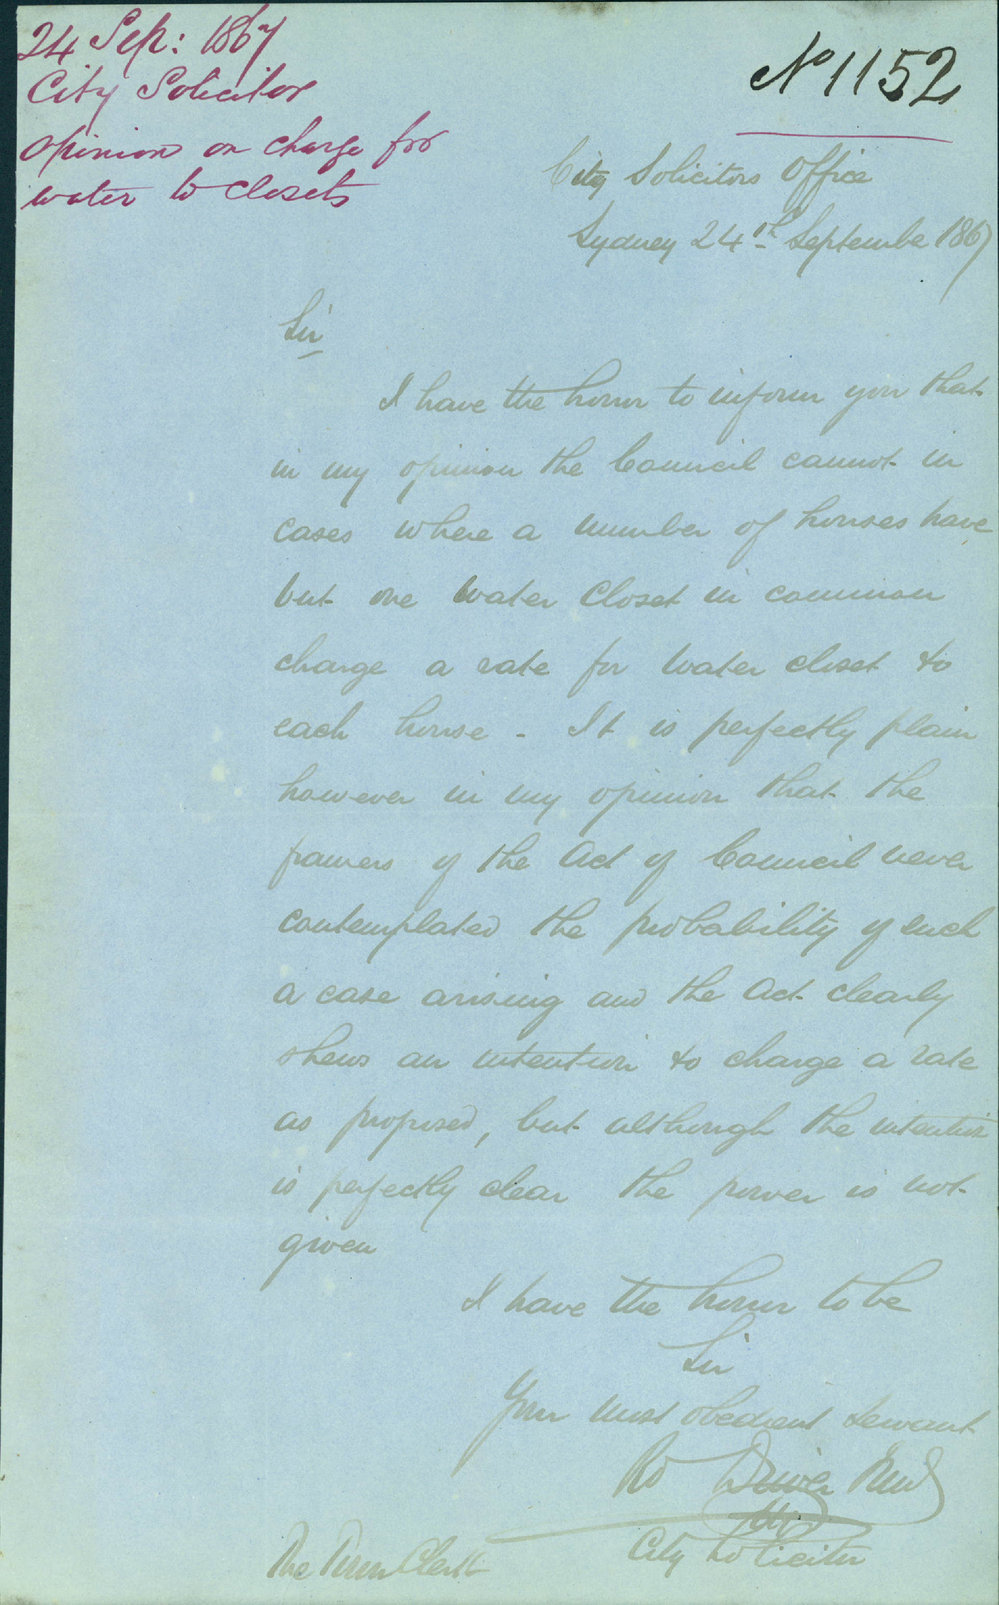 24 Sep: 1867
City Solicitor
opinion on charge for
water to closets
No 1152
City Solicitors Office
Sydney 24th September 1867
Sir
I have the honor to inform you that
in my opinion the Council cannot in
cases where a number of houses have
but one water closet in common
charge a rate for water closet to
each house - It is perfectly plain
however in my opinion that the
framers of the Act of Council never
contemplated the probability of such
a case arising and the Act clearly
shews an intention to charge a rate
as proposed, but although the intention
is perfectly clear the power is not
given
I have the honor to be
Sir
Your most obedient servant
Rd Driver Junr
City Solicitor
The Town Clerk